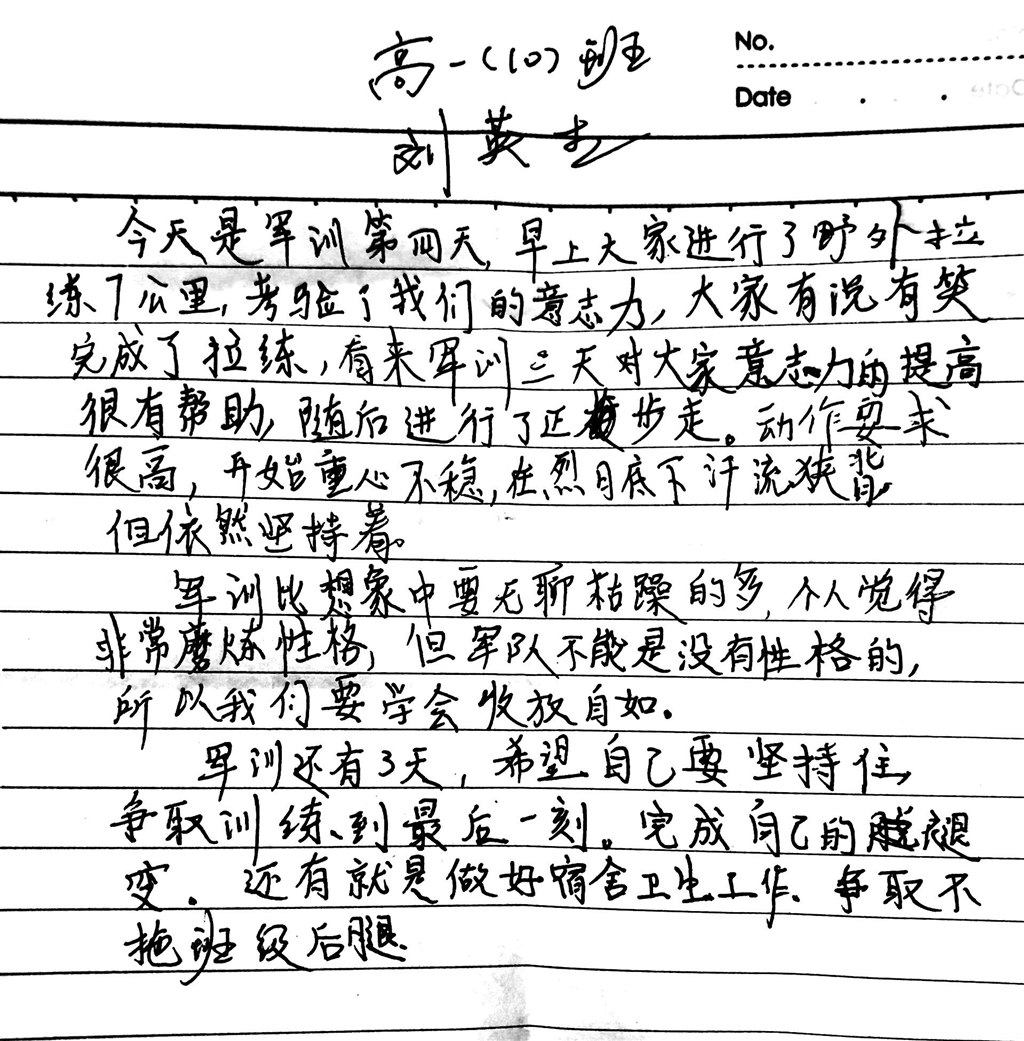 高一(10)班
No.
Date
刘英杰
今天是军训第四天,早上大家进行了野外拉
练7公里,考验了我们的意志力,大家有说有笑
完成了拉练,看来军训三天对大家意志力的提高
很有帮助,随后进行了正步走。动作要求
很高,开始重心不稳,在烈日底下汗流狭背
但依然坚持着。
军训比想象中要无聊枯躁的多,个人觉得
非常磨炼性格,但军队不能是没有性格的,
所以我们要学会收放自如。
军训还有3天,希望自己要坚持住,
争取训练到最后一刻。完成自己的腿
变.还有就是做好宿舍卫生工作、争取不
拖班级后腿.